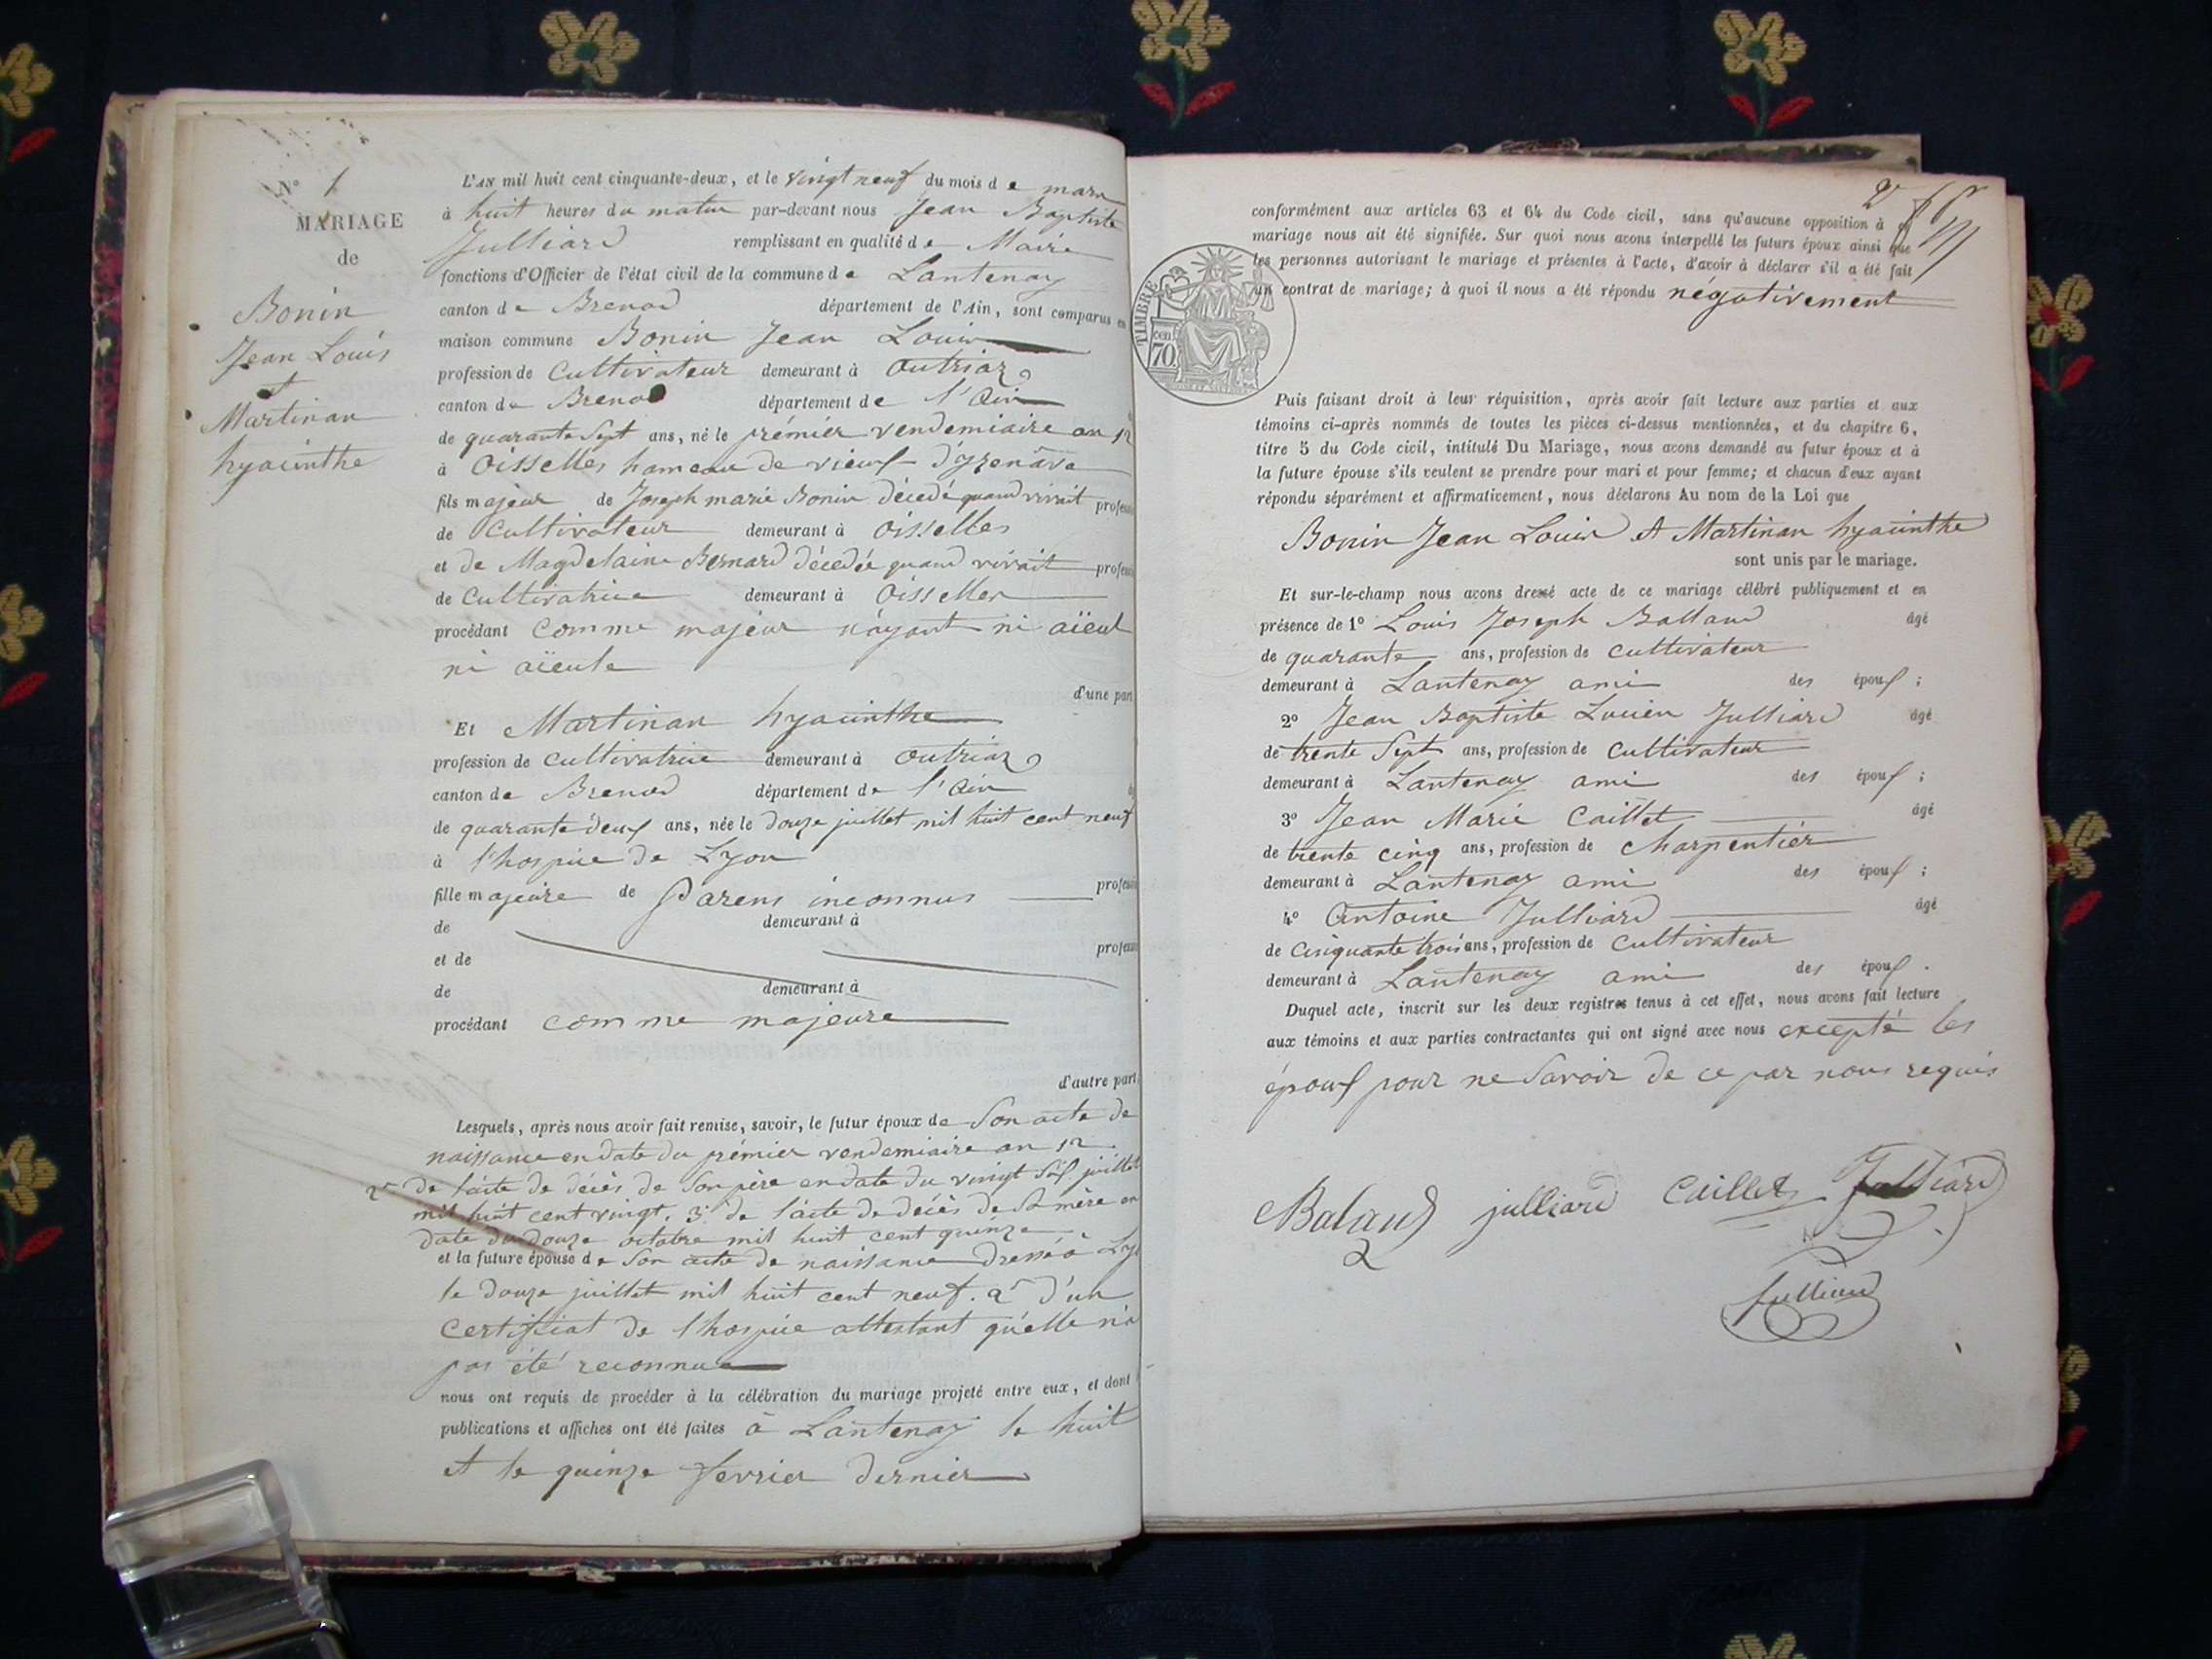 N° 1
MARIAGE
de
Bonin
Jean Louis
et
Martinan
hyacinthe
L'AN mil huit cent cinquante-deux, et le vingt neuf du mois de mars
à huit heures du matin par-devant nous Jean Baptiste
Julliard remplissant en qualité de Maire
fonctions d'Officier de l'état civil de la commune de Lantenay
canton de Brenod département de l'Ain, sont comparus en
maison commune Bonin Jean Louis
profession de cultivateur demeurant à Outriaz
canton de Brenod département de l'Ain
de quarante sept ans, né le prémier vendemiaire an 12
à Oisselles hameau de vieux d'yzenave
fils majeur de Joseph marie Bonin décedé quand vivait profess
de cultivateur demeurant à Oisselles
et de Magdelaine Bernard décedée quand vivait profess
de cultivatrice demeurant à Oisselles
procédant comme majeur n'ayant ni aïeul
ni aïeule
d'une part
Et Martinan hyacinthe
profession de cultivatrice demeurant à Outriaz
canton de Brenod département de l'Ain
de quarante deux ans, née le douze juillet mil huit cent neuf
à l'hospice de Lyon
fille majeure de Parens inconnus profess
de demeurant à
et de profess
de demeurant à
procédant comme majeure
d'autre part
Lesquels, après nous avoir fait remise, savoir, le futur époux de Son acte de
naissance en date du prémier vendemiaire an 12
2° de l'acte de décès de Son père en date du vingt Six juillet
mil huit cent vingt. 3° de l'acte de décès de Sa mère en
date du douze octobre mil huit cent quinze
et la future épouse de Son acte de naissance dressé à Ly
le douze juillet mil huit cent neuf. 2° d'un
certificat de l'hospice attestant qu'elle n'a
pas été reconnue
nous ont requis de procéder à la célébration du mariage projeté entre eux, et dont
publications et affiches ont été faites à Lantenay le huit
et le quinze fevrier dernier
conformément aux articles 63 et 64 du Code civil, sans qu'aucune opposition à ce
mariage nous ait été signifiée. Sur quoi nous avons interpellé les futurs époux ainsi que
les personnes autorisant le mariage et présentes à l'acte, d'avoir à déclarer s'il a été fait
un contrat de mariage; à quoi il nous a été répondu négativement
TIMBRE
cen
70
Puis faisant droit à leur réquisition, après avoir fait lecture aux parties et aux
témoins ci-après nommés de toutes les pièces ci-dessus mentionnées, et du chapitre 6,
titre 5 du Code civil, intitulé Du Mariage, nous avons demandé au futur époux et à
la future épouse s'ils veulent se prendre pour mari et pour femme; et chacun d'eux ayant
répondu séparément et affirmativement, nous déclarons Au nom de la Loi que
Bonin Jean Louis et Martinan hyacinthe
sont unis par le mariage.
Et sur-le-champ nous avons dressé acte de ce mariage célébré publiquement et en
présence de 1° Louis Joseph Balland âgé
de quarante ans, profession de cultivateur
demeurant à Lantenay ami des époux ;
2° Jean Baptiste Lucien Julliard âgé
de trente Sept ans, profession de cultivateur
demeurant à Lantenay ami des époux ;
3° Jean Marie Caillet âgé
de trente cinq ans, profession de charpentier
demeurant à Lantenay ami des époux ;
4° Antoine Julliard âgé
de cinquante trois ans, profession de cultivateur
demeurant à Lantenay ami des époux .
Duquel acte, inscrit sur les deux registres tenus à cet effet, nous avons fait lecture
aux témoins et aux parties contractantes qui ont signé avec nous excepté les
époux pour ne Savoir de ce par nous requis
Baland julliard Caillet Julliard
Julliard